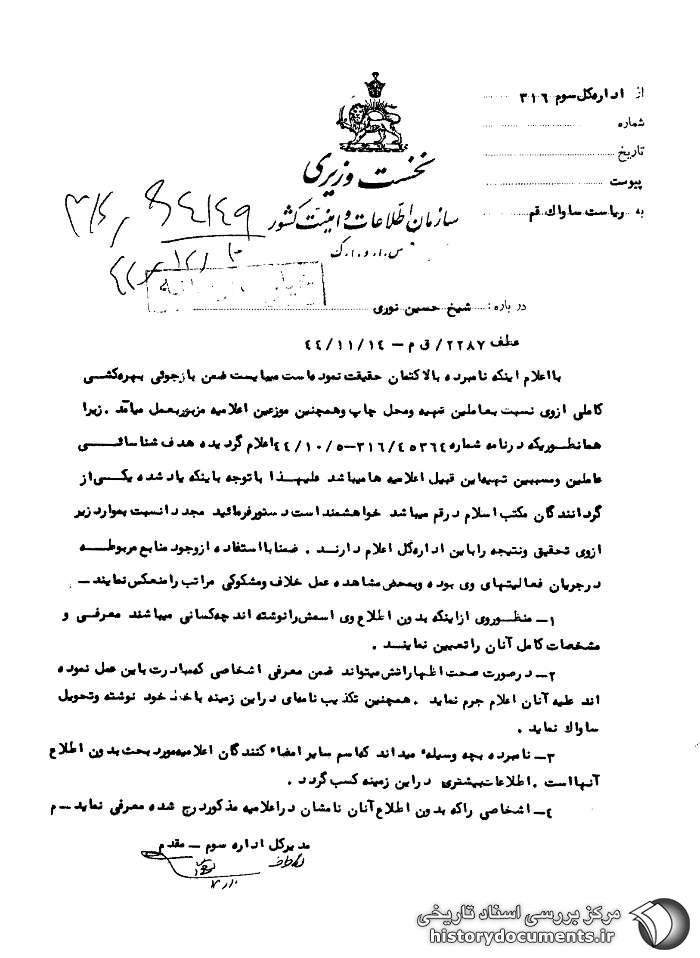 از اداره کل سوم ۳۱۶
شماره
تاریخ
پیوست
به ریاست ساواک قم
نخست وزیری
سازمان اطلاعات و امنیت کشور
س.ا.و.ا.ک
درباره : شیخ حسین نوری
عطف ۲۲۸۷/ ق م – ۴۴/۱۱/۱۴
با اعلام اینکه نامبرده بالا کتمان حقیقت نموده است میبایست ضمن بازجوئی بهره کشی
کاملی از وی نسبت بعاملین تهیه ومحل چاپ وهمچنین موزعین اعلامیه مزبور بعمل میآمد . زیرا
همانطوریکه در نامه شماره ۳۱۶/۴۵۳۶۴–۴۴/۱۰/۵ اعلام گردیده هدف شناسائی
عاملین ومسببین تهیه این قبیل اعلامیه ها میباشد علیهذا با توجه باینکه یاد شده یکی از
گردانندگان مکتب اسلام در قم میباشد خواهشمند است دستور فرمائید مجددا نسبت بموارد زیر
از وی تحقیق ونتیجه را باین اداره کل اعلام دارند . ضمنا با استفاده از وجود منابع مربوطه
در جریان فعالیتهای وی بوده وبمحض مشاهده عمل خلاف ومشکوکی مراتب را منعکس نمایند –
۱– منظور وی از اینکه بدون اطلاع وی اسمش را نوشته اند چه کسانی میباشند معرفی و
مشخصات کامل آنان را تعیین نمایند .
۲– در صورت صحت اظهاراتش میتواند ضمن معرفی اشخاصی که مبادرت باین عمل نموده
اند علیه آنان اعلام جرم نماید . همچنین تکذیب نامه ای در این زمینه با خط خود نوشته وتحویل
ساواک نماید .
۳– نامبرده بچه وسیله میداند که اسم سایر امضاء کنندگان اعلامیه مورد بحث بدون اطلاع
آنها است . اطلاعات بیشتری در این زمینه کسب گردد .
۴– اشخاصی را که بدون اطلاع آنان نامشان در اعلامیه مذکور درج شده معرفی نماید – م
مدیرکل اداره سوم – مقدم
مرکز بررسی اسناد تاریخی
historydocuments.ir